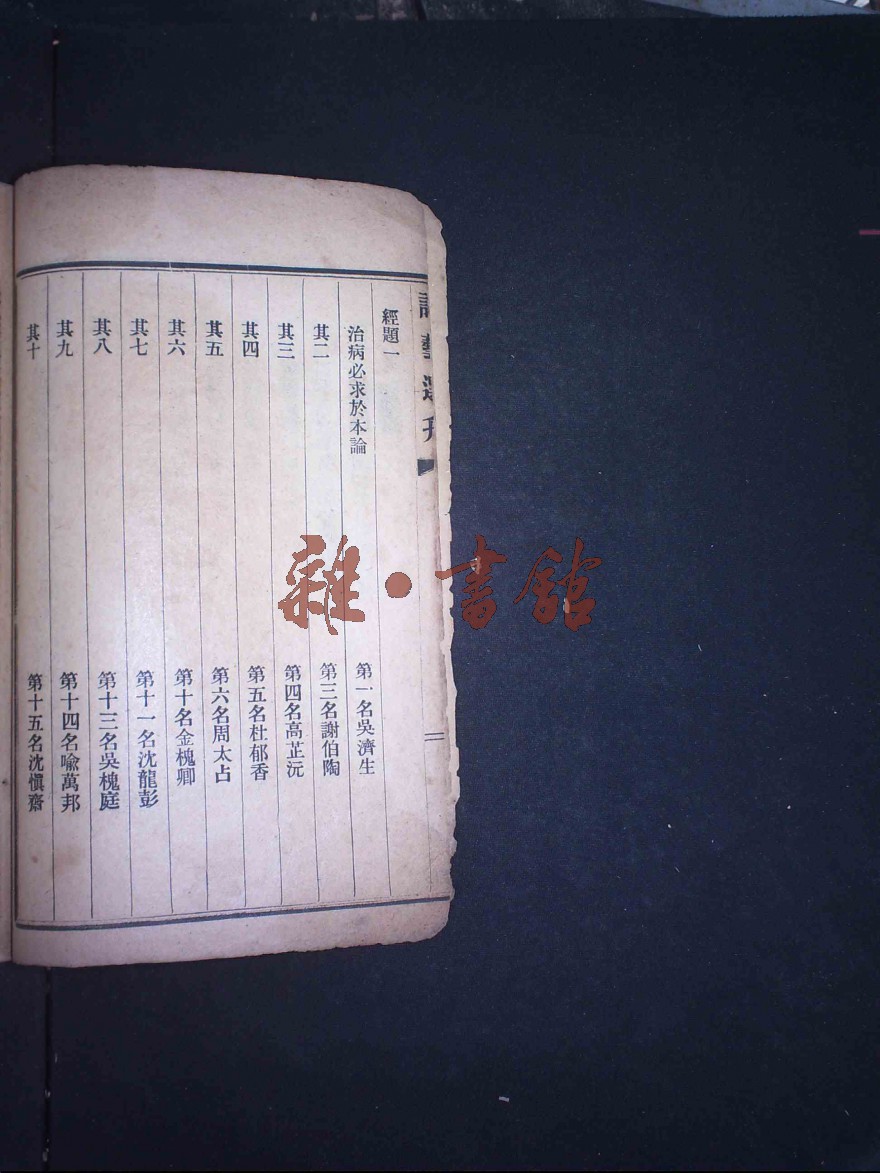 課藝選丹
經題一
治病必求於本論 第一名吳濟生
其二 第三名謝伯陶
其三 第四名高芷沅
其四 第五名杜郁香
其五 第六名周太占
其六 第十名金槐卿
其七 第十一名沈龍彭
其八 第十三名吳槐庭
其九 第十四名喩萬邦
其十 第十五名沈愼齋
二
雜·書館